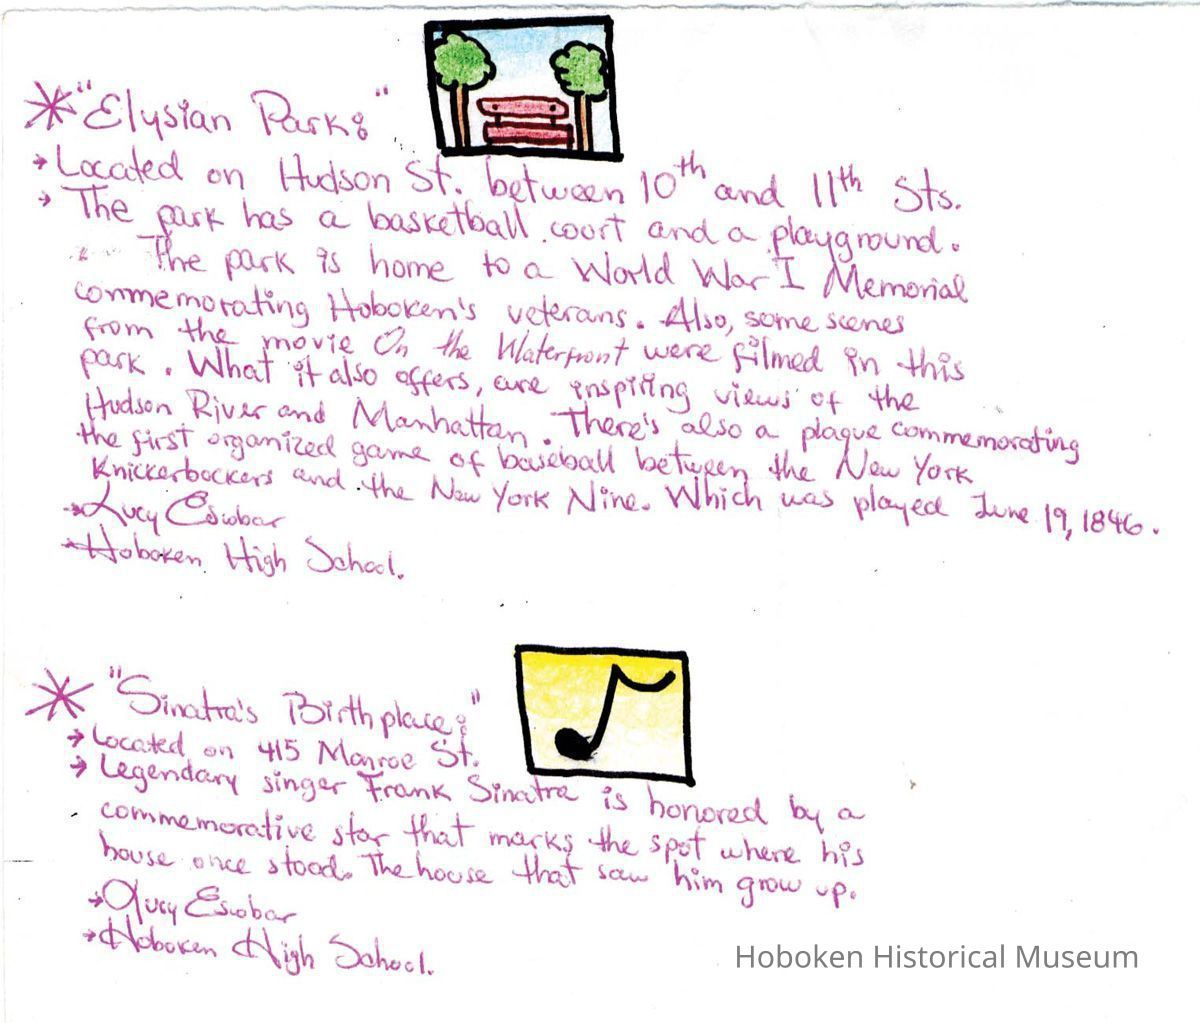 * "Elysian Park:"
→ Located on Hudson St. between 10th and 11th Sts.
→ The park has a basketball court and a playground.
The park is home to a World War I Memorial
commemorating Hoboken's veterans. Also, some scenes
from the movie On the Waterfront were filmed in this
park. What it also offers, are inspiring views of the
Hudson River and Manhattan. There's also a plaque commemorating
the first organized game of baseball between the New York
Knickerbockers and the New York Nine. Which was played June 19, 1846.
→ Lucy Escobar
→ Hoboken High School.
* "Sinatra's Birthplace:"
→ Located on 415 Monroe St.
→ Legendary singer Frank Sinatra is honored by a
commemorative star that marks the spot where his
house once stood. The house that saw him grow up.
→ Lucy Escobar
→ Hoboken High School.
Hoboken Historical Museum